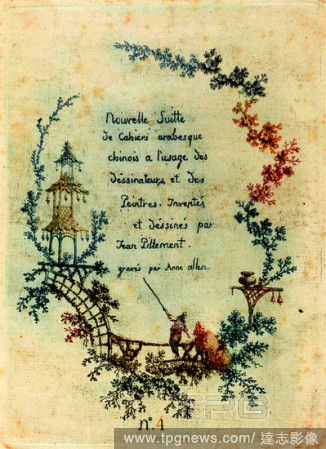 Nouvelle Suitte
de Cahiers arabesque
chinois a l'usage des
déssinateurs et des
Peintres. Inventés
et déssinés par
Jean Pillement.
gravés par Anne allen.
n° 4
www.tpgnews.com / 達志影像